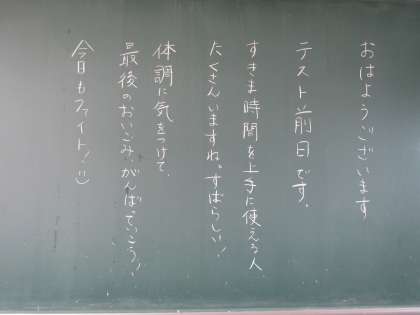 おはようございます
テスト前日です.
すきま時間を上手に使える人
たくさんいますね。すばらしい!
体調に気をつけて、
最後のおいこみ、がんばっていこう!
今日もファイト!